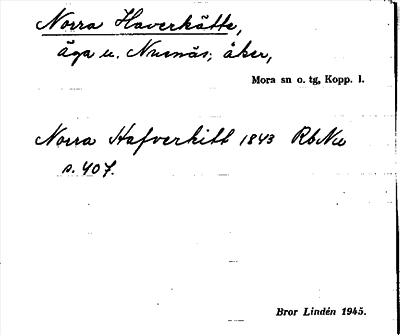 Norra Haverkätte,
äga u. Nusnäs; åker,
Mora sn o. tg, Kopp. l.
Norra Hafverkitt 1843 RbNu
s. 407.
Bror Lindén 1945.